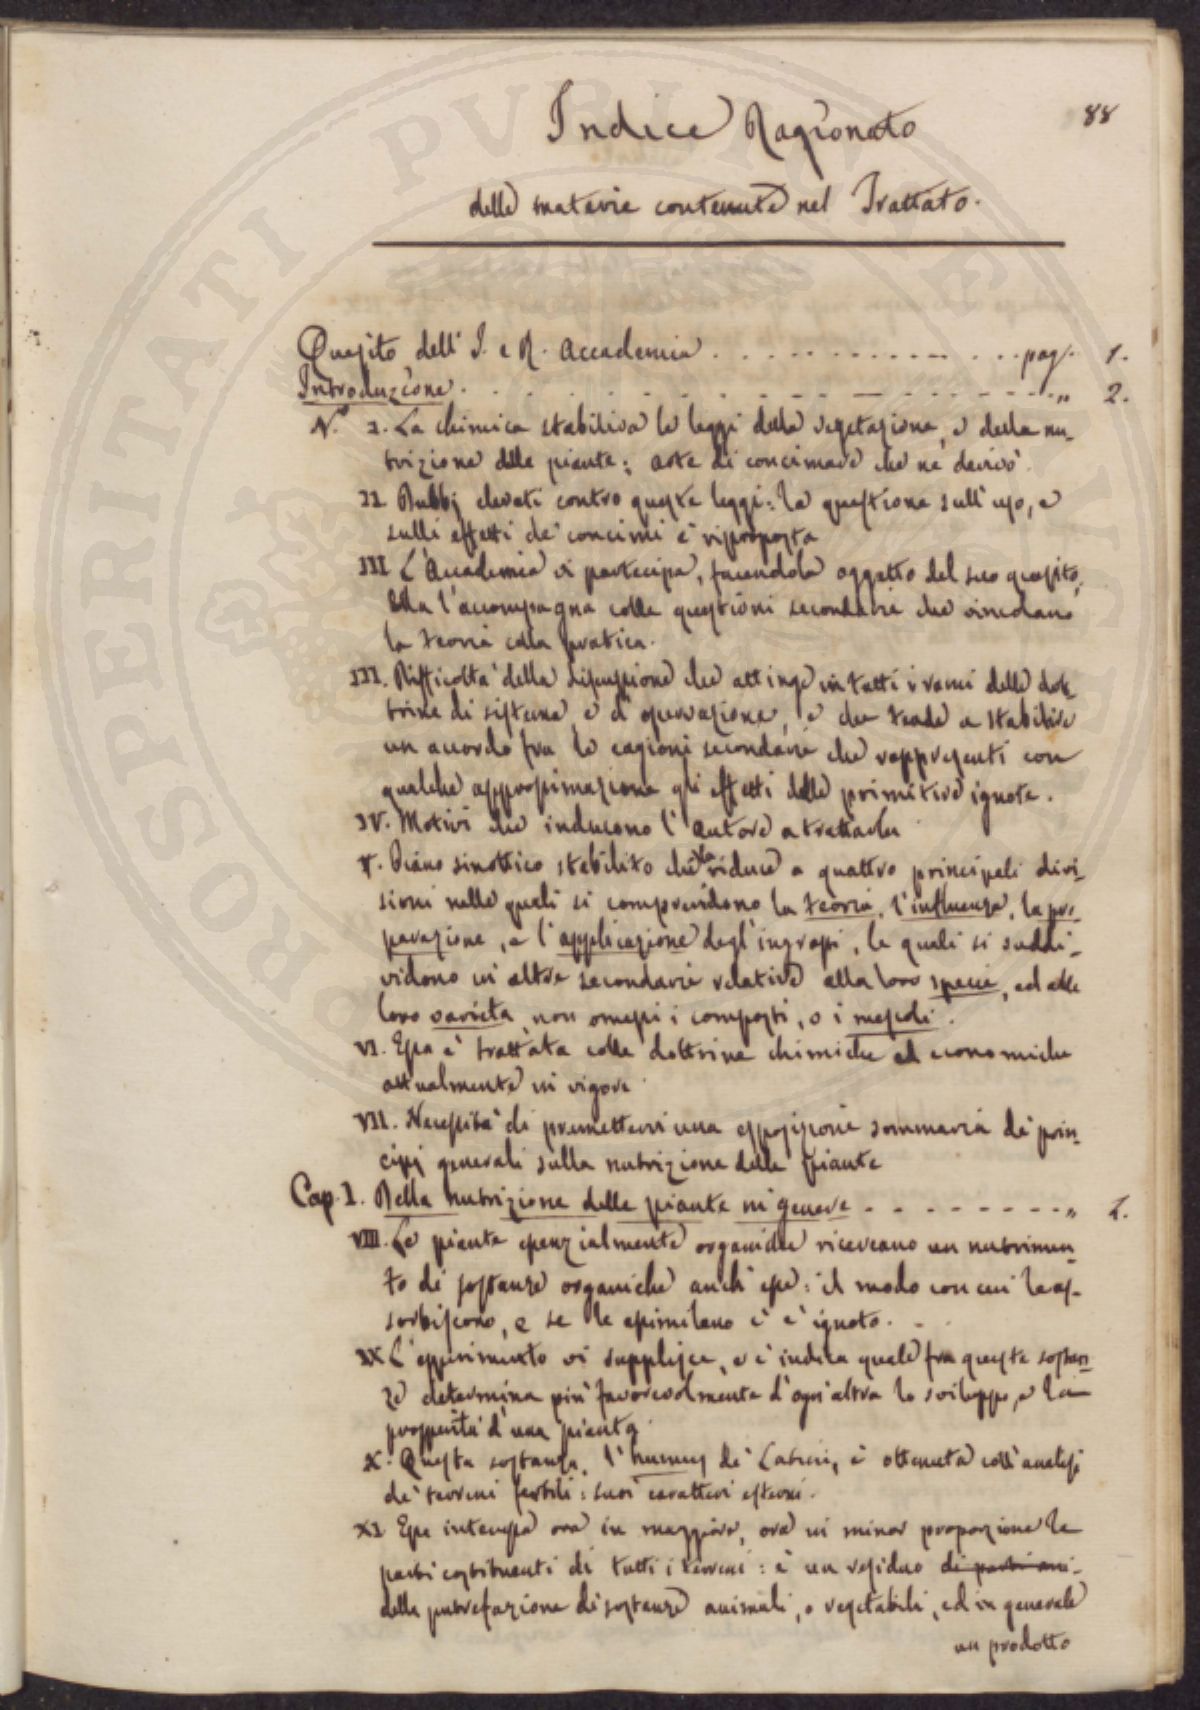 88
Indice Ragionato
delle materie contenute nel Trattato.
Quesito dell' I. e R. Accademia . . . . . . . . . . . . . . . pag. 1.
Introduzione . . . . . . . . . . . . . . . . . . . . . . . . „ 2.
N.° I. La chimica stabiliva le leggi della vegetazione, e della nu-
trizione delle piante; arte di concimare che ne derivò.
II Dubbj elevati contro queste leggi: la questione sull'uso, e
sulli effetti de' concimi è riproposta
III L'Accademia vi partecipa, facendola oggetto del suo quesito,
Ella l'accompagna colle questioni secondarie che vincolano
la teoria colla pratica.
III. Difficoltà della discussione che attinge in tutti i rami delle dot-
trine di sistema, e d'osservazione, e che tende a stabilire
un accordo fra le cagioni secondarie che rappresenti con
qualche approssimazione gli effetti delle primitive ignote.
IV. Motivi che inducono l'autore a trattarla
V. Piano sinottico stabilito che la riduce a quattro principali divi-
sioni nelle quali si comprendono la teoria, l'influenza, la pre-
parazione, e l'applicazione degl'ingrassi, le quali si suddi-
vidono in altre secondarie relative alla loro specie, ed alle
loro varietà, non omessi i composti, o i mescoli.
VI. Essa è trattata colle dottrine chimiche ed economiche
attualmente in vigore.
VII. Necessità di premettervi una esposizione sommaria de' prin-
cipj generali sulla nutrizione delle piante
Cap. I. Della nutrizione delle piante in genere - - - - - - - - „ 2.
VIII. Le piante essenzialmente organiche ricercano un nutrimen-
to di sostanze organiche anch'esse: il modo con cui le as-
sorbiscono, e se le assimilano ci è ignoto.
IX L'esperimento vi supplisce, e ci indica quale fra queste sostan-
ze determina più favorevolmente d'ogni altra lo sviluppo, e la
prosperità d'una pianta.
X. Questa sostanza, l'humus de' Latini, è ottenuta coll'analisi
de' terreni fertili: suoi caratteri esterni.
XI Essa interessa ora in maggiore, ora in minor proporzione le
parti costituenti di tutti i terreni: è un residuo di parti ani-
della putrefazione di sostanze animali, o vegetabili, ed in generale
un prodotto